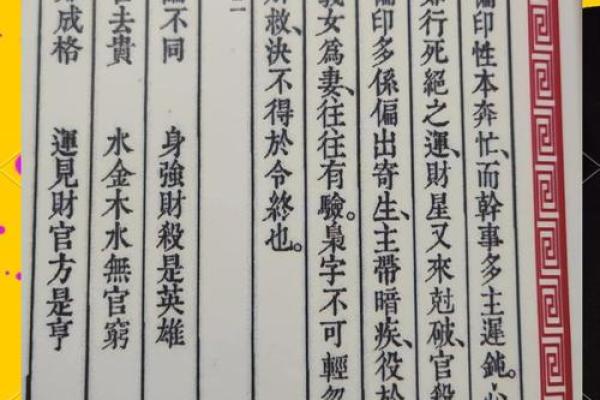 偏印性本奔忙、而幹事多主遲鈍。心
行死絕之運、財星又來尅破、官殺
偏印多係偏出寄生、主帶暗疾、役於
義女爲妻、往往有驗。梟字不可輕忽
救、決不得於令終也。
不同　身強財殺是英雄
去貴　水金木水無官窮
成格　運見財官方是亨